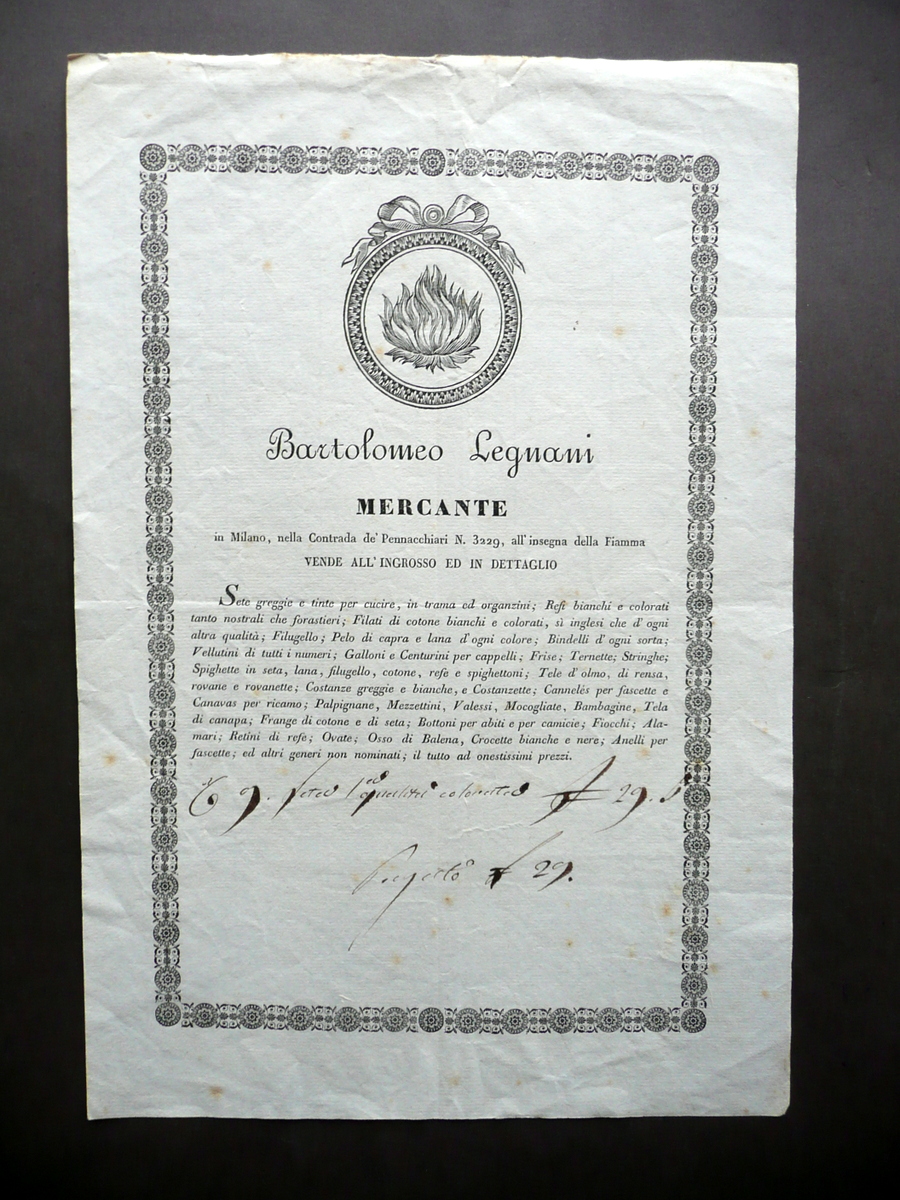 Bartolomeo Legnani
MERCANTE
in Milano, nella Contrada de' Pennacchiari N. 3229, all'insegna della Fiamma
VENDE ALL'INGROSSO ED IN DETTAGLIO
Sete greggie e tinte per cucire, in trama ed organzini; Refi bianchi e colorati
tanto nostrali che forastieri; Filati di cotone bianchi e colorati, sì inglesi che d'ogni
altra qualità; Filugello; Pelo di capra e lana d'ogni colore; Bindelli d'ogni sorta;
Vellutini di tutti i numeri; Galloni e Centurini per cappelli; Frise; Ternette; Stringhe;
Spighette in seta, lana, filugello, cotone, refe e spighettoni; Tele d'olmo, di rensa,
rovane e rovanette; Costanze greggie e bianche, e Costanzette; Cannelés per fascette e
Canavas per ricamo; Palpignane, Mezzettini, Valessi, Mocogliate, Bambagine, Tela
di canapa; Frange di cotone e di seta; Bottoni per abiti e per camicie; Fiocchi; Ala-
mari; Retini di refe; Ovate; Osso di Balena, Crocette bianche e nere; Anelli per
fascette; ed altri generi non nominati; il tutto ad onestissimi prezzi.
9. 29.
29.